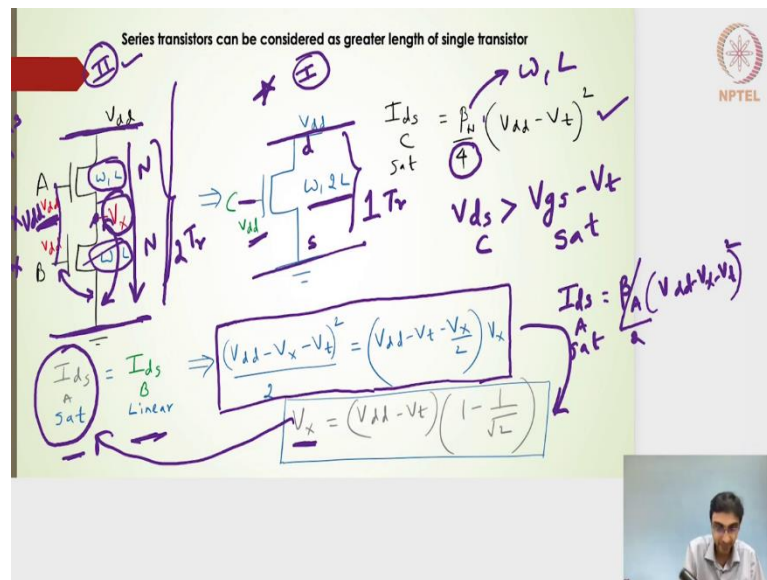 Series transistors can be considered as greater length of single transistor
NPTEL
II
I
ω, L
Vdd
A
ω, L
N
Vdd
Vx
2Tr
Vdd
Vdd
B
ω, L
N
⇒
Vdd
d
C
Vdd
ω, 2L
1 Tr
s
Ids C sat = βN/4 (Vdd - Vt)²
Vds C > Vgs - Vt sat
Ids A sat = βA/2 (Vdd - Vx - Vt)²
Ids A sat = Ids B Linear ⇒ (Vdd - Vx - Vt)²/2 = (Vdd - Vt - Vx/2) Vx
Vx = (Vdd - Vt) (1 - 1/√2)